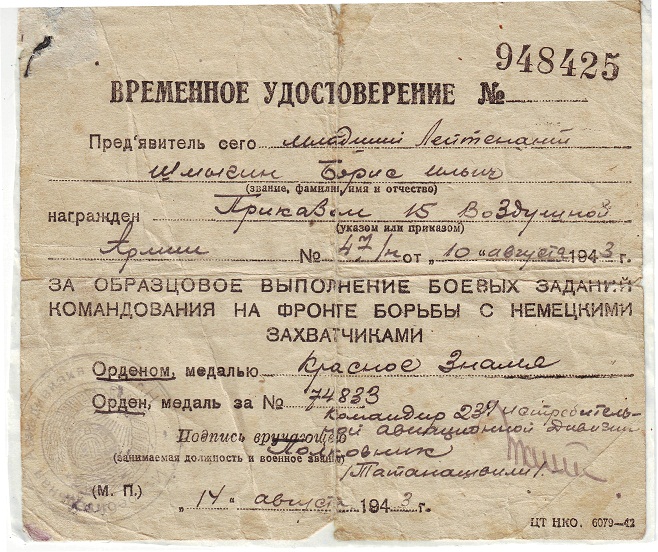 948425
ВРЕМЕННОЕ УДОСТОВЕРЕНИЕ №
Пред'явитель сего младший Лейтенант
Шмыгин Борис Ильич
(звание, фамилия, имя и отчество)
награжден Приказом 15 Воздушной
(указом или приказом)
Армии № 47/н от „10“ августа 1943 г.
ЗА ОБРАЗЦОВОЕ ВЫПОЛНЕНИЕ БОЕВЫХ ЗАДАНИЙ
КОМАНДОВАНИЯ НА ФРОНТЕ БОРЬБЫ С НЕМЕЦКИМИ
ЗАХВАТЧИКАМИ
Орденом, медалью Красное Знамя
Орден, медаль за № 74833
Командир 234 истребитель-
ной авиационной дивизии
Подпись вручающего
Полковник
(занимаемая должность и военное звание)
/Татанашвили/
(М. П.) „14“ августа 1943 г.
ЦТ НКО. 6079—42